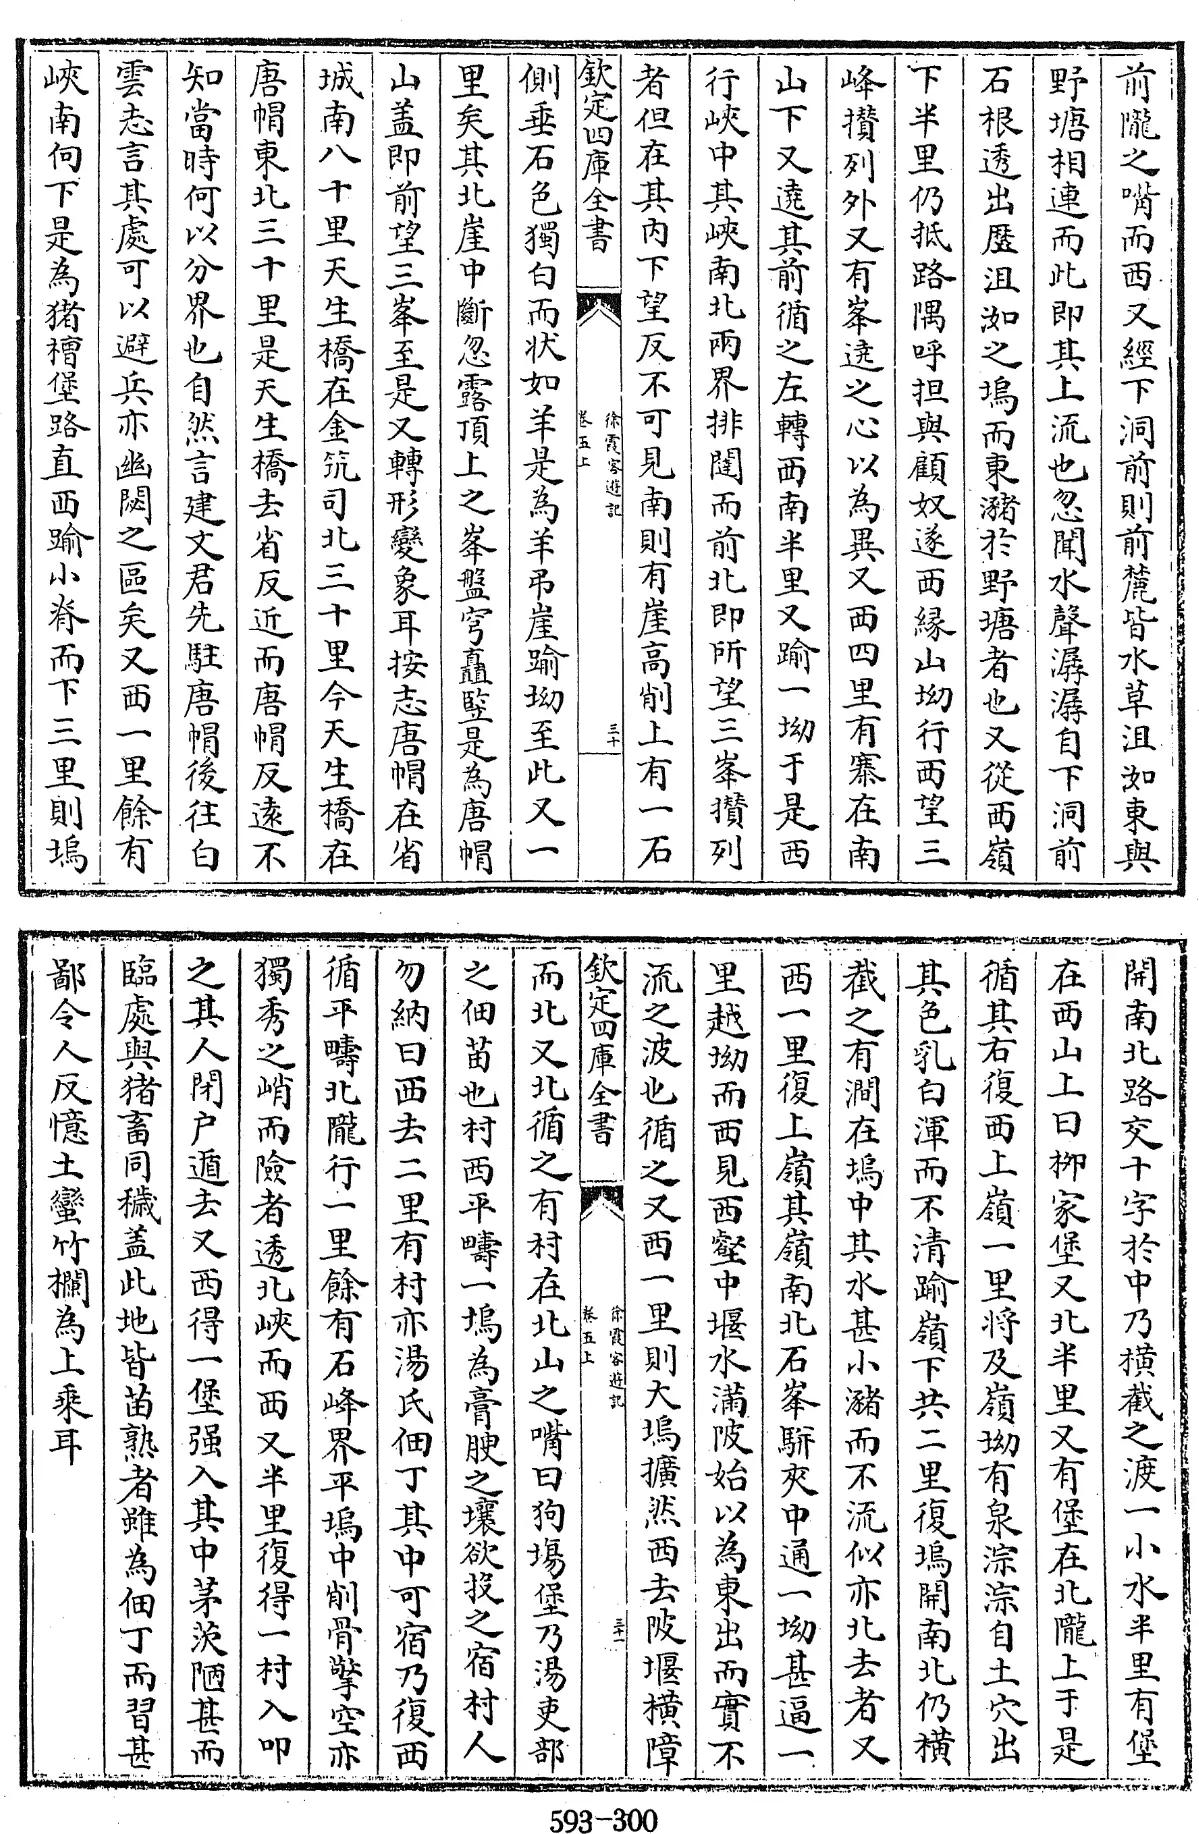 前隴之嘴而西又經下洞前則前麓皆水草沮洳東與
野塘相連而此即其上流也忽聞水聲潺潺自下洞前
石根透出歷沮洳之塢而東瀦於野塘者也又從西嶺
下半里仍抵路隅呼担與顧奴遂西縁山坳行西望三
峰攅列外又有峯遶之心以為異又西四里有寨在南
山下又遶其前循之左轉西南半里又踰一坳于是西
行峽中其峽南北兩界排闥而前北即所望三峯攅列
者但在其内下望反不可見南則有崖高削上有一石
欽定四庫全書
徐霞客遊記
卷五上
三十
側垂石色獨白而状如羊是為羊吊崖踰坳至此又一
里矣其北崖中斷忽露頂上之峯盤穹矗竪是為唐帽
山盖即前望三峯至是又轉形變象耳按志唐帽在省
城南八十里天生橋在金筑司北三十里今天生橋在
唐帽東北三十里是天生橋去省反近而唐帽反逺不
知當時何以分界也自然言建文君先駐唐帽後往白
雲志言其處可以避兵亦幽閟之區矣又西一里餘有
峽南向下是為猪槽堡路直西踰小脊而下三里則塢
開南北路交十字於中乃横截之渡一小水半里有堡
在西山上曰栁家堡又北半里又有堡在北隴上于是
循其右復西上嶺一里将及嶺坳有泉淙淙自土穴出
其色乳白渾而不清踰嶺下共二里復塢開南北仍横
截之有澗在塢中其水甚小瀦而不流似亦北去者又
西一里復上嶺其嶺南北石峯駢夾中通一坳甚逼一
里越坳而西見西壑中堰水滿陂始以為東出而實不
流之波也循之又西一里則大塢擴然西去陂堰横障
欽定四庫全書
徐霞客遊記
卷五上
三十一
而北又北循之有村在北山之嘴曰狗塲堡乃湯吏部
之佃苗也村西平疇一塢為膏腴之壤欲投之宿村人
勿納曰西去二里有村亦湯氏佃丁其中可宿乃復西
循平疇北隴行一里餘有石峰界平塢中削骨擎空亦
獨秀之峭而險者透北峽而西又半里復得一村入叩
之其人閉户遁去又西得一堡强入其中茅茨陋甚而
臨處與猪畜同穢盖此地皆苗熟者雖為佃丁而習甚
鄙令人反憶土蠻竹欄為上乘耳
593-300